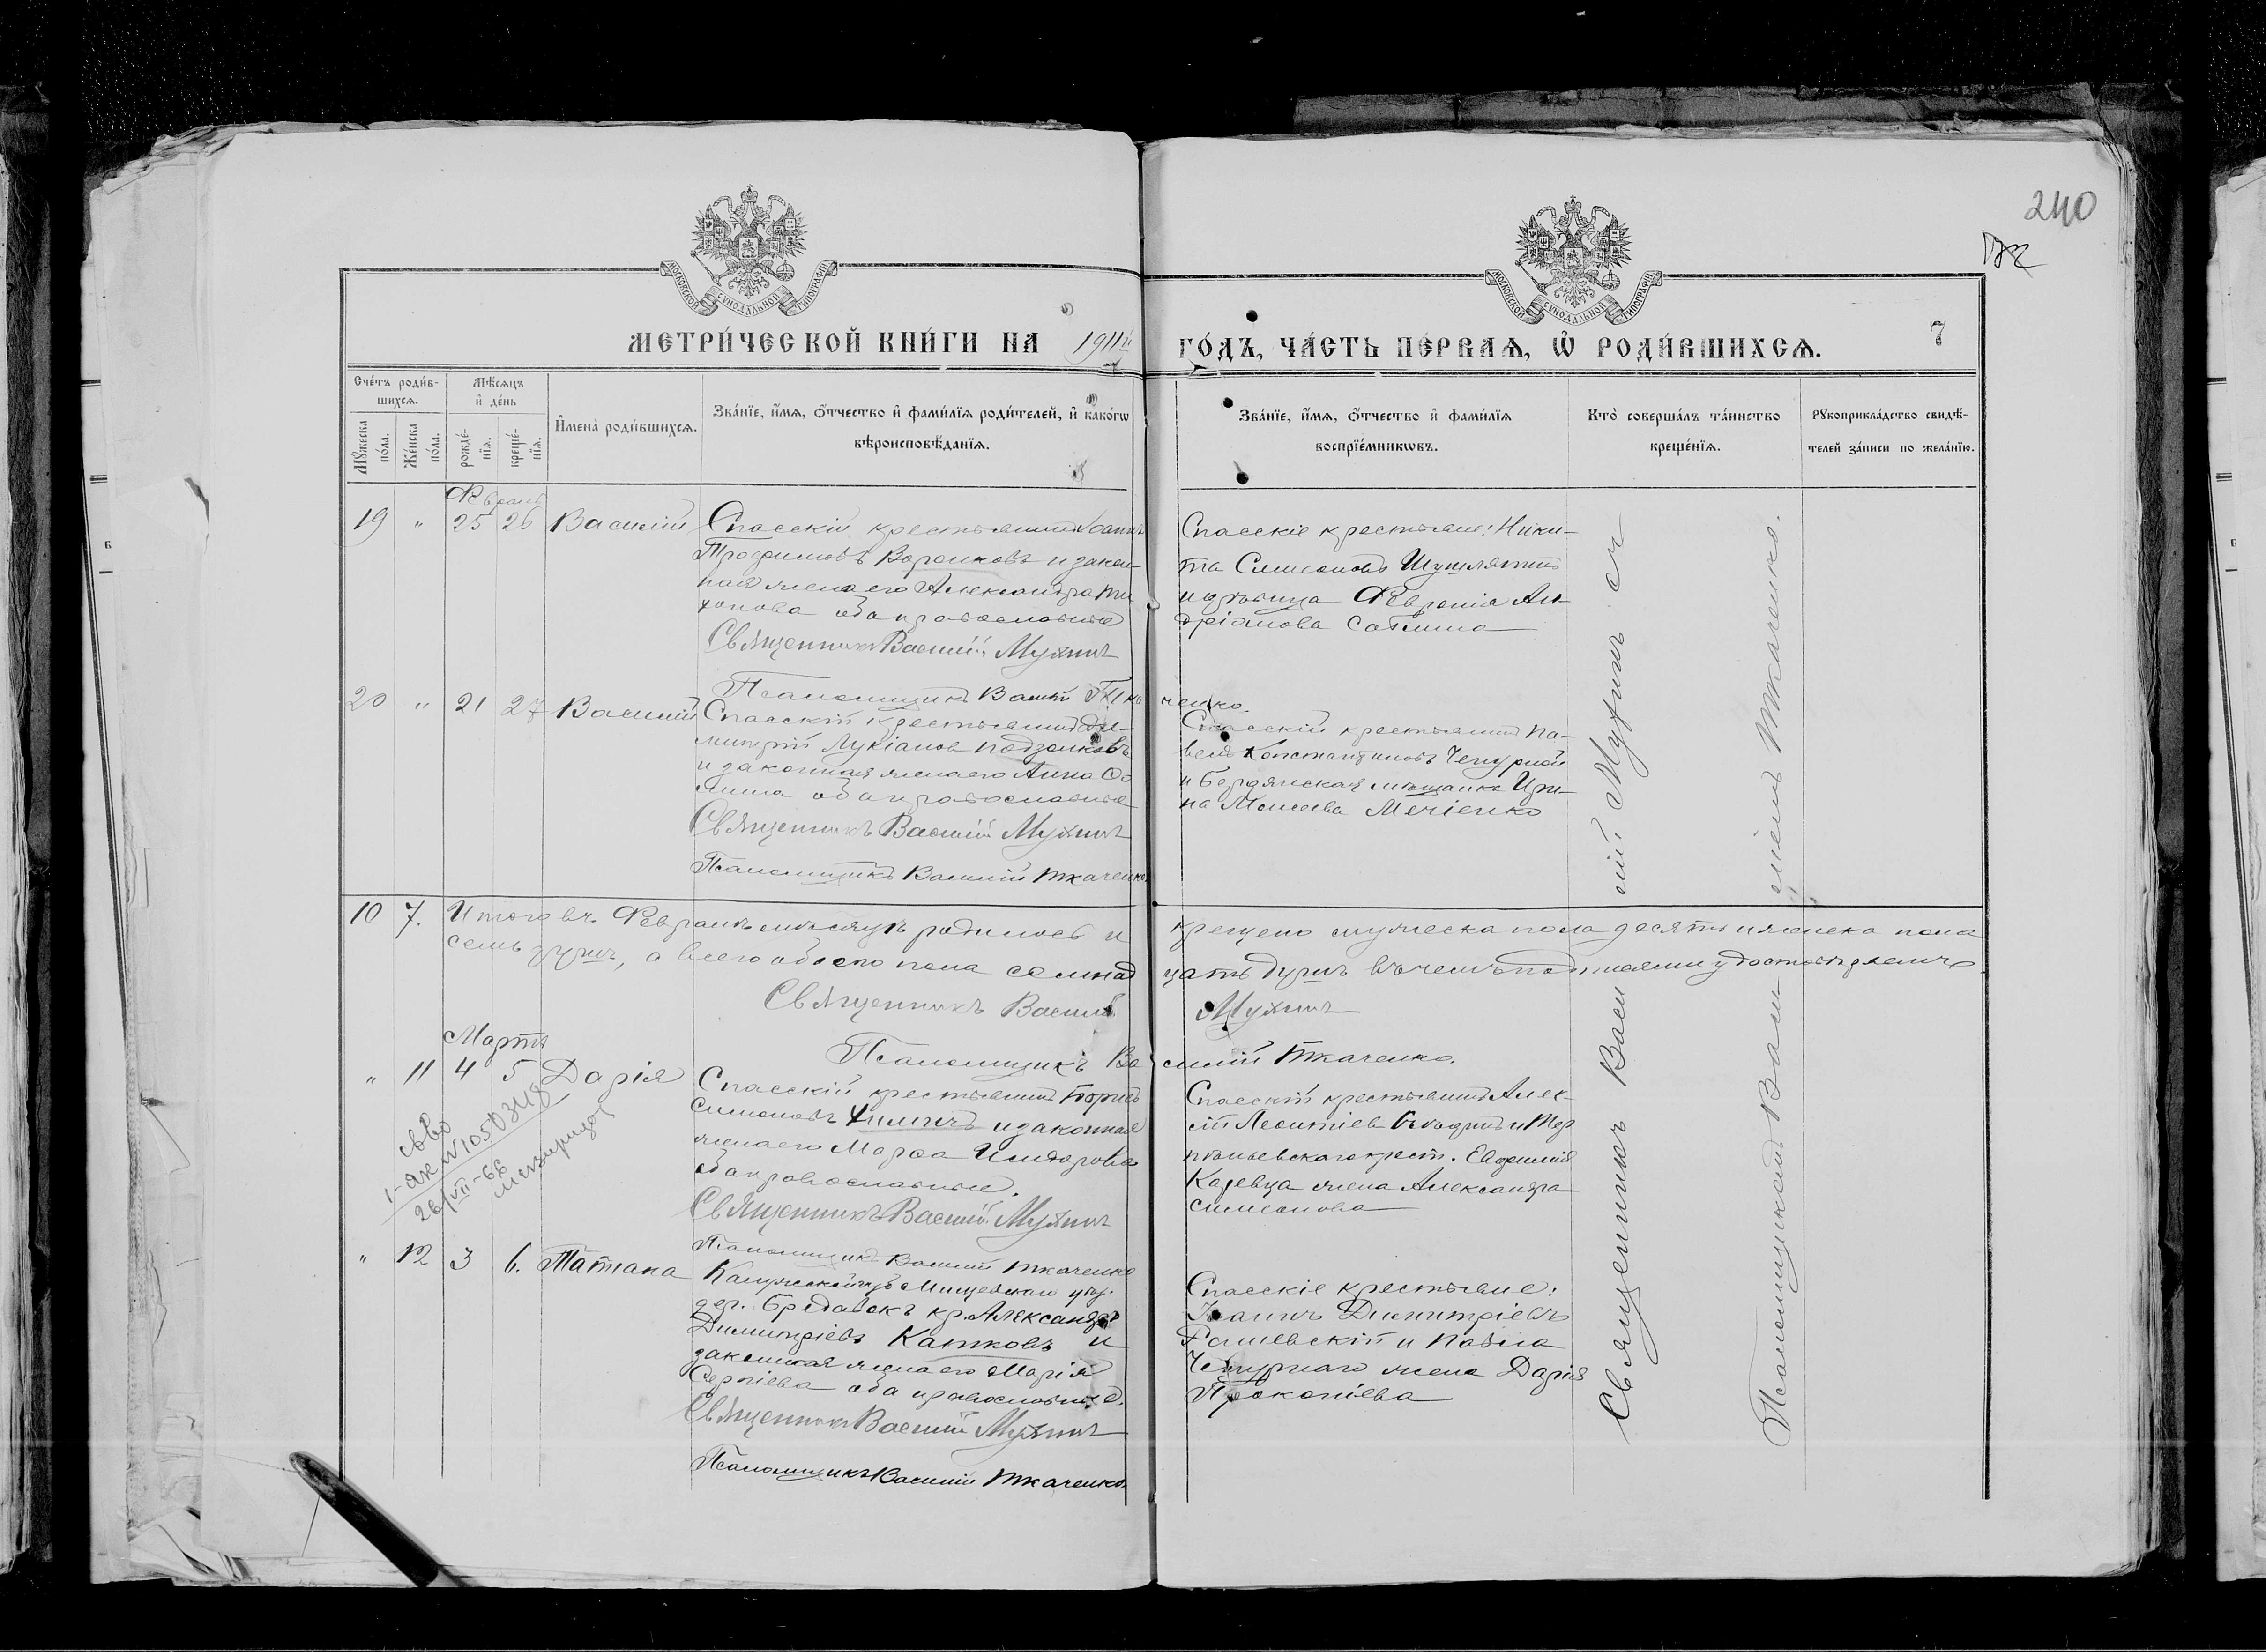 240
МОСКОВСКОЙ СУНОДАЛЬНОЙ ТИПОГРАФІИ
МОСКОВСКОЙ СУНОДАЛЬНОЙ ТИПОГРАФІИ
МЕТРИ́ЧЕСКОЙ КНИ́ГИ НА 1911й ГО́ДЪ, ЧА́СТЬ ПЕ́РВАЯ, Ѡ РОДИ́ВШИХСЯ. 7
Сче́тъ роди́в-
шихся.
Мѣ́сяцъ
и҆ де́нь
Мꙋ́жеска по́ла.
Же́нска по́ла.
рожде́-
нїя.
креще́-
нїя.
И҆мена̀ роди́вшихся.
Зва́нїе, и҆́мя, ѻ҆́тчество и҆ фами́лїя роди́телей, и҆ како́гѡ
вѣроисповѣ́данїя.
Зва́нїе, и҆́мя, ѻ҆́тчество и҆ фами́лїя
воспрїе́мникѡвъ.
Кто̀ соверша́лъ та́инство
креще́нїя.
Рꙋкоприкла́дство свидѣ́-
телей за́писи по жела́нїю.
19 " 25 26 Василій
Спасскій крестьянинъ Іоаннъ
Трофимовъ Воронковъ и закон-
ная жена его Александра Ти
хонова оба православные
Священникъ Василій Мухинъ
Псаломщикъ Васил Ткаченко.
Спасскіе крестьяне: Ники-
та Симеоновъ
и дѣвица Февронія Ан-
дріанова
20 " 21 27 Василій
Спасскій крестьянинъ Ди-
митрій Лукіановъ
и законная жена его Анна
оба православные
Священникъ Василій Мухинъ
Псаломщикъ Василій Ткаченко.
Спасскій крестьянинъ Па-
велъ Константиновъ Чепурной
и Бердянская мѣщанка Ири-
на Моисеева
10 7. Итого въ Февралѣ мѣсяцѣ родилось и крещено мужеска пола десять и женска пола
семь душъ, а всего обоего пола семнадцать душъ въ чемъ подписями удостовѣряемъ
Священникъ Василій Мухинъ
Псаломщикъ Василій Ткаченко.
Марта
" 11 4 5 Дарія
Спасскій крестьянинъ
Симеоновъ и законная
жена его Марѳа Исидорова
оба православные.
Священникъ Василій Мухинъ
Псаломщикъ Василій Ткаченко
Спасскій крестьянинъ Алек-
сій Леонтіевъ и Тер
пѣньевскаго крест. Евфимія
жена Александра
Симеонова
св-во
26/VII-66
" 12 3 6. Татіана
Калужской губ. Мещовскаго уѣз.
дер. кр. Александръ
Димитріевъ Катковъ и
законная жена его Марія
Сергіева оба православные.
Священникъ Василій Мухинъ
Псаломщикъ Василій Ткаченко.
Спасскіе крестьяне:
Іоаннъ Димитріевъ
и Павла
Чепурнаго жена Дарія
Прокопіева
Священникъ Василій Мухинъ съ
Псаломщикомъ Василіемъ Ткаченко.